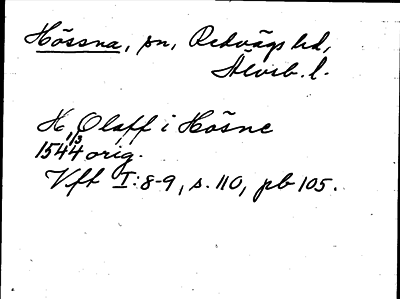 Hössna, sn, Redvägs hd,
Älvsb. l.
H. Olaff i Hösne
1544 1/3 orig.
Vft I: 8-9, s. 110, pb 105.